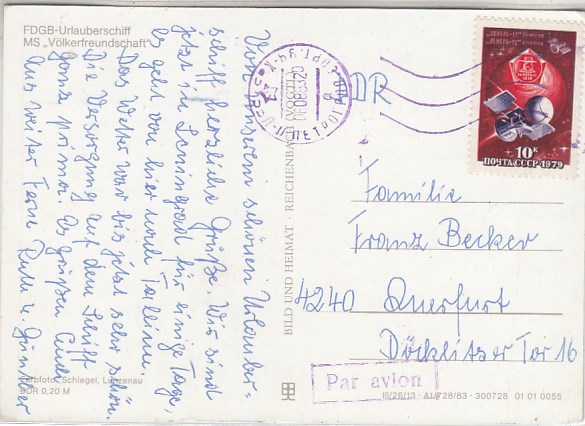 FDGB-Urlauberschiff
MS „Völkerfreundschaft"
Von unserem schönen Urlauber=
schiff herzliche Grüße. Wir sind
jetzt in Leningrad für einige Tage,
es geht von hier nach Tallinn.
Das Wetter war bis jetzt sehr schön.
Die Versorgung auf dem Schiff
ganz prima. Es grüßen Euch
aus weiter Ferne Ruth u. Günther
Farbfoto: Schlegel, Lunzenau
DDR 0,20 M
BILD UND HEIMAT · REICHENBACH (VOGTL)
„ВЕНЕРА-11"
„ВЕНЕРА-12"
10к
ПОЧТА СССР · 1979
DDR
Familie
Franz Becker
4240 Querfurt
Döcklitzer Tor 16
Par avion
III/26/13 · A1/728/83 · 300728 01 01 0055